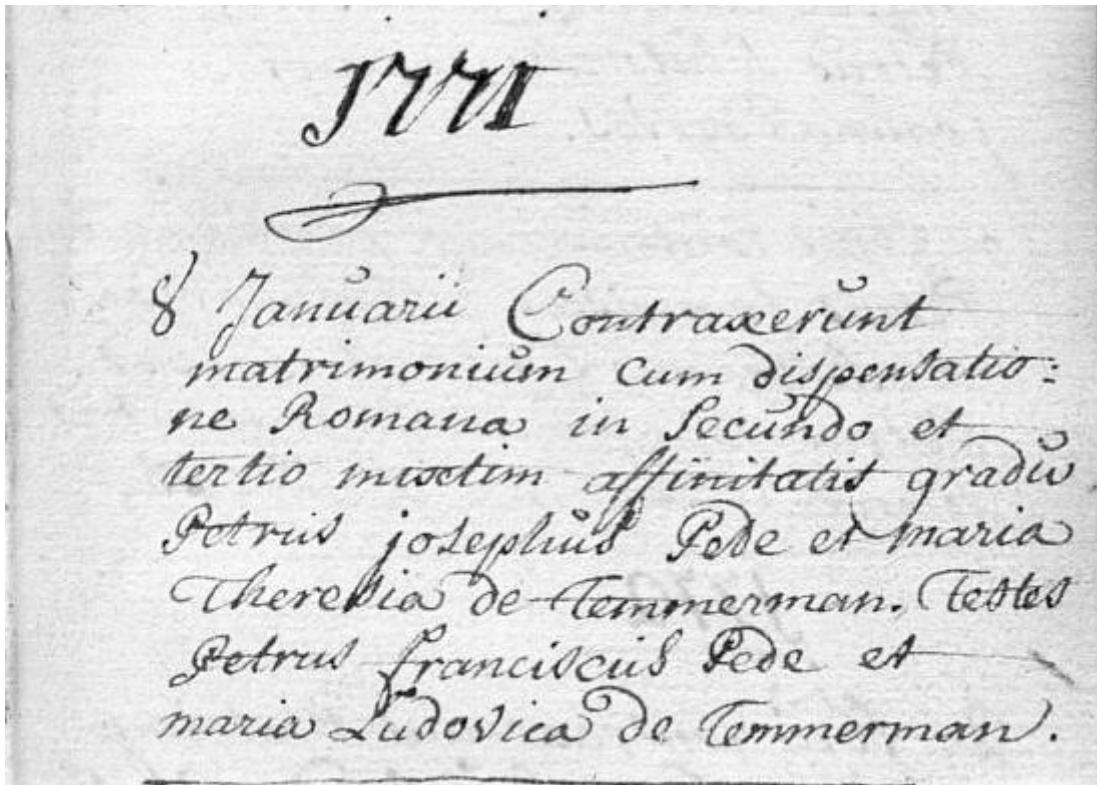 1771
8 Januarii Contraxerunt
matrimonium cum dispensatio:
ne Romana in Secundo et
tertio mixtim affinitatis gradu
Petrus josephus Pede et maria
Theresia de Temmerman. Testes
Petrus franciscus Pede et
maria Ludovica de Temmerman.